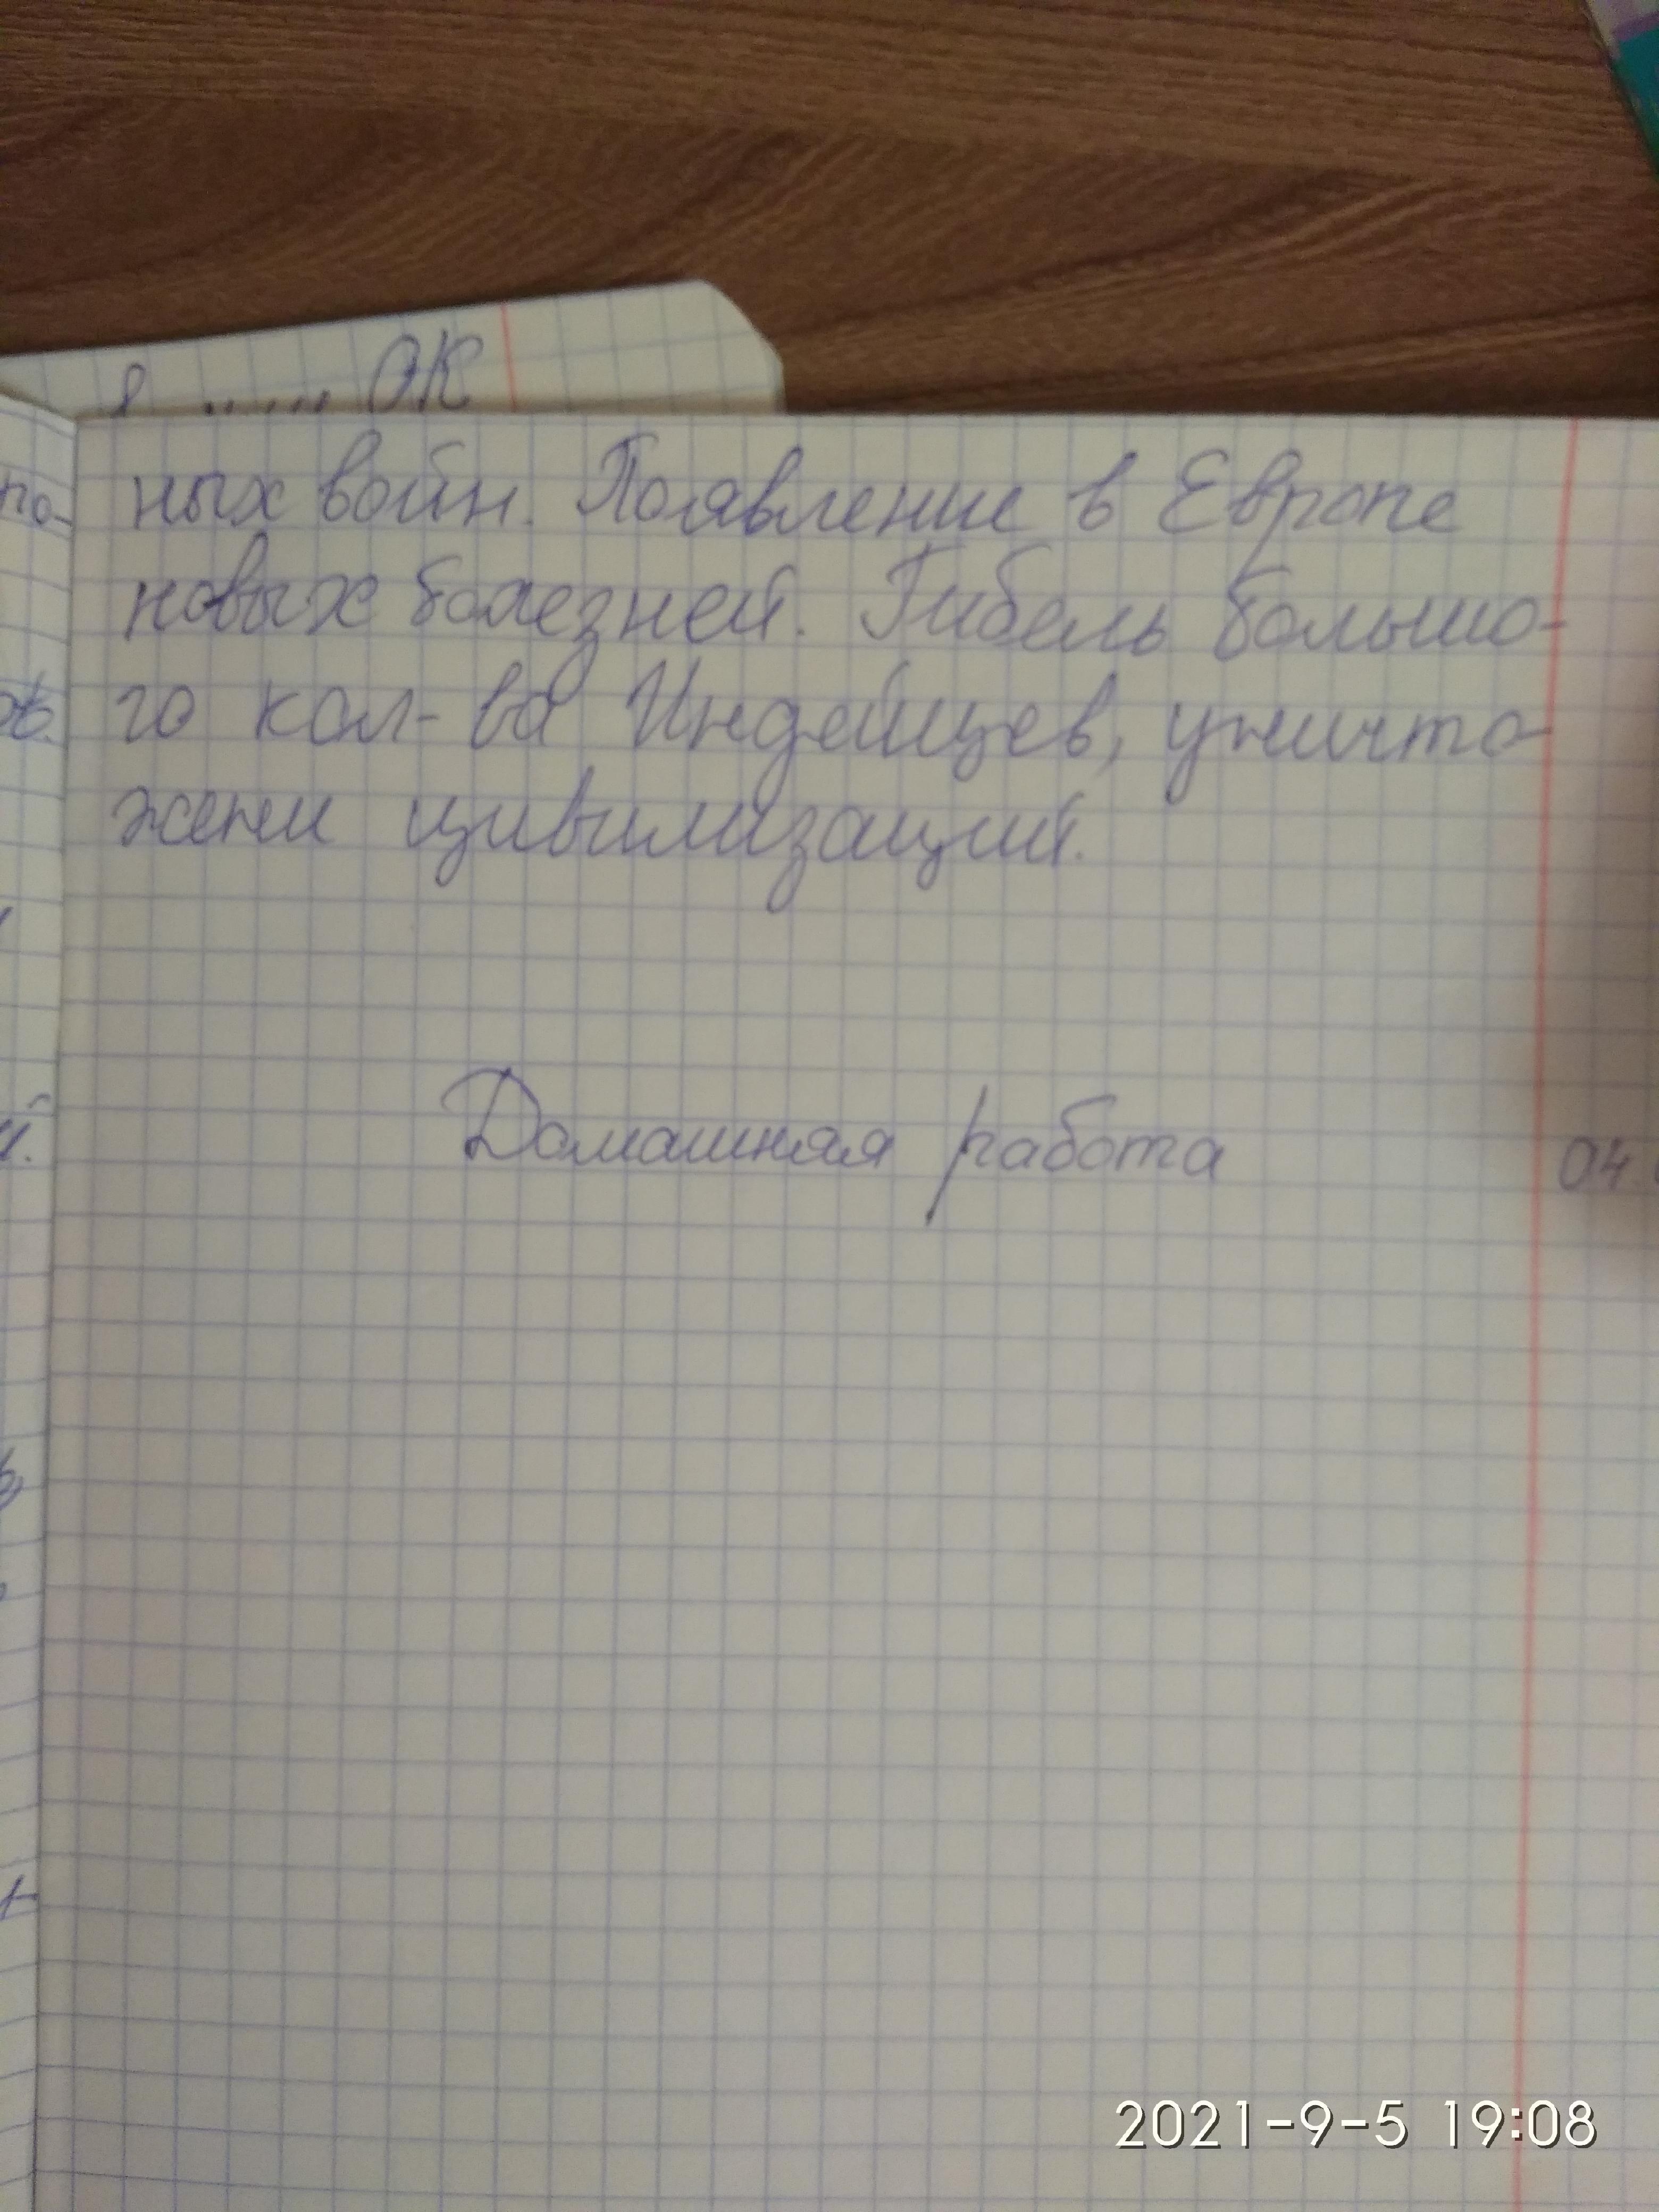 ОК
ных войн. Появление в Европе
новых болезней. Гибель большо-
го кол-ва Индейцев, уничто-
жени цивилизаций.
Домашняя работа
04.
2021-9-5 19:08